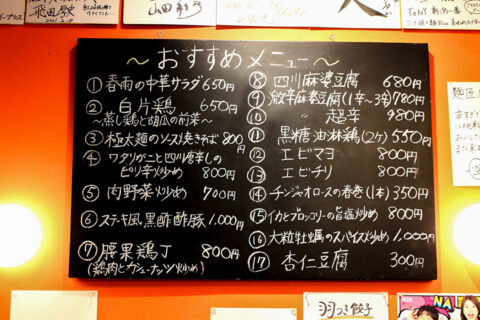 ～おすすめメニュー～
① 春雨の中華サラダ 650円
② 白片鶏 650円
～蒸し鶏と胡瓜の前菜～
③ 極太麺のソース焼きそば 800円
④ ワタリガニと四川唐辛しの
ピリ辛炒め 800円
⑤ 肉野菜炒め 700円
⑥ ステーキ風黒酢酢豚 1,000円
⑦ 腰果鶏丁 800円
(鶏肉とカシューナッツ炒め)
⑧ 四川麻婆豆腐 680円
⑨ 激辛麻婆豆腐(1辛～3辛) 780円
⑩ 〃 超辛 980円
⑪ 黒糖油淋鶏(2ケ) 550円
⑫ エビマヨ 800円
⑬ エビチリ 800円
⑭ チンジャオロースの春巻(1本) 350円
⑮ イカとブロッコリーの旨塩炒め 800円
⑯ 大粒牡蠣のスパイス炒め 1,000円
⑰ 杏仁豆腐 300円
羽つき餃子